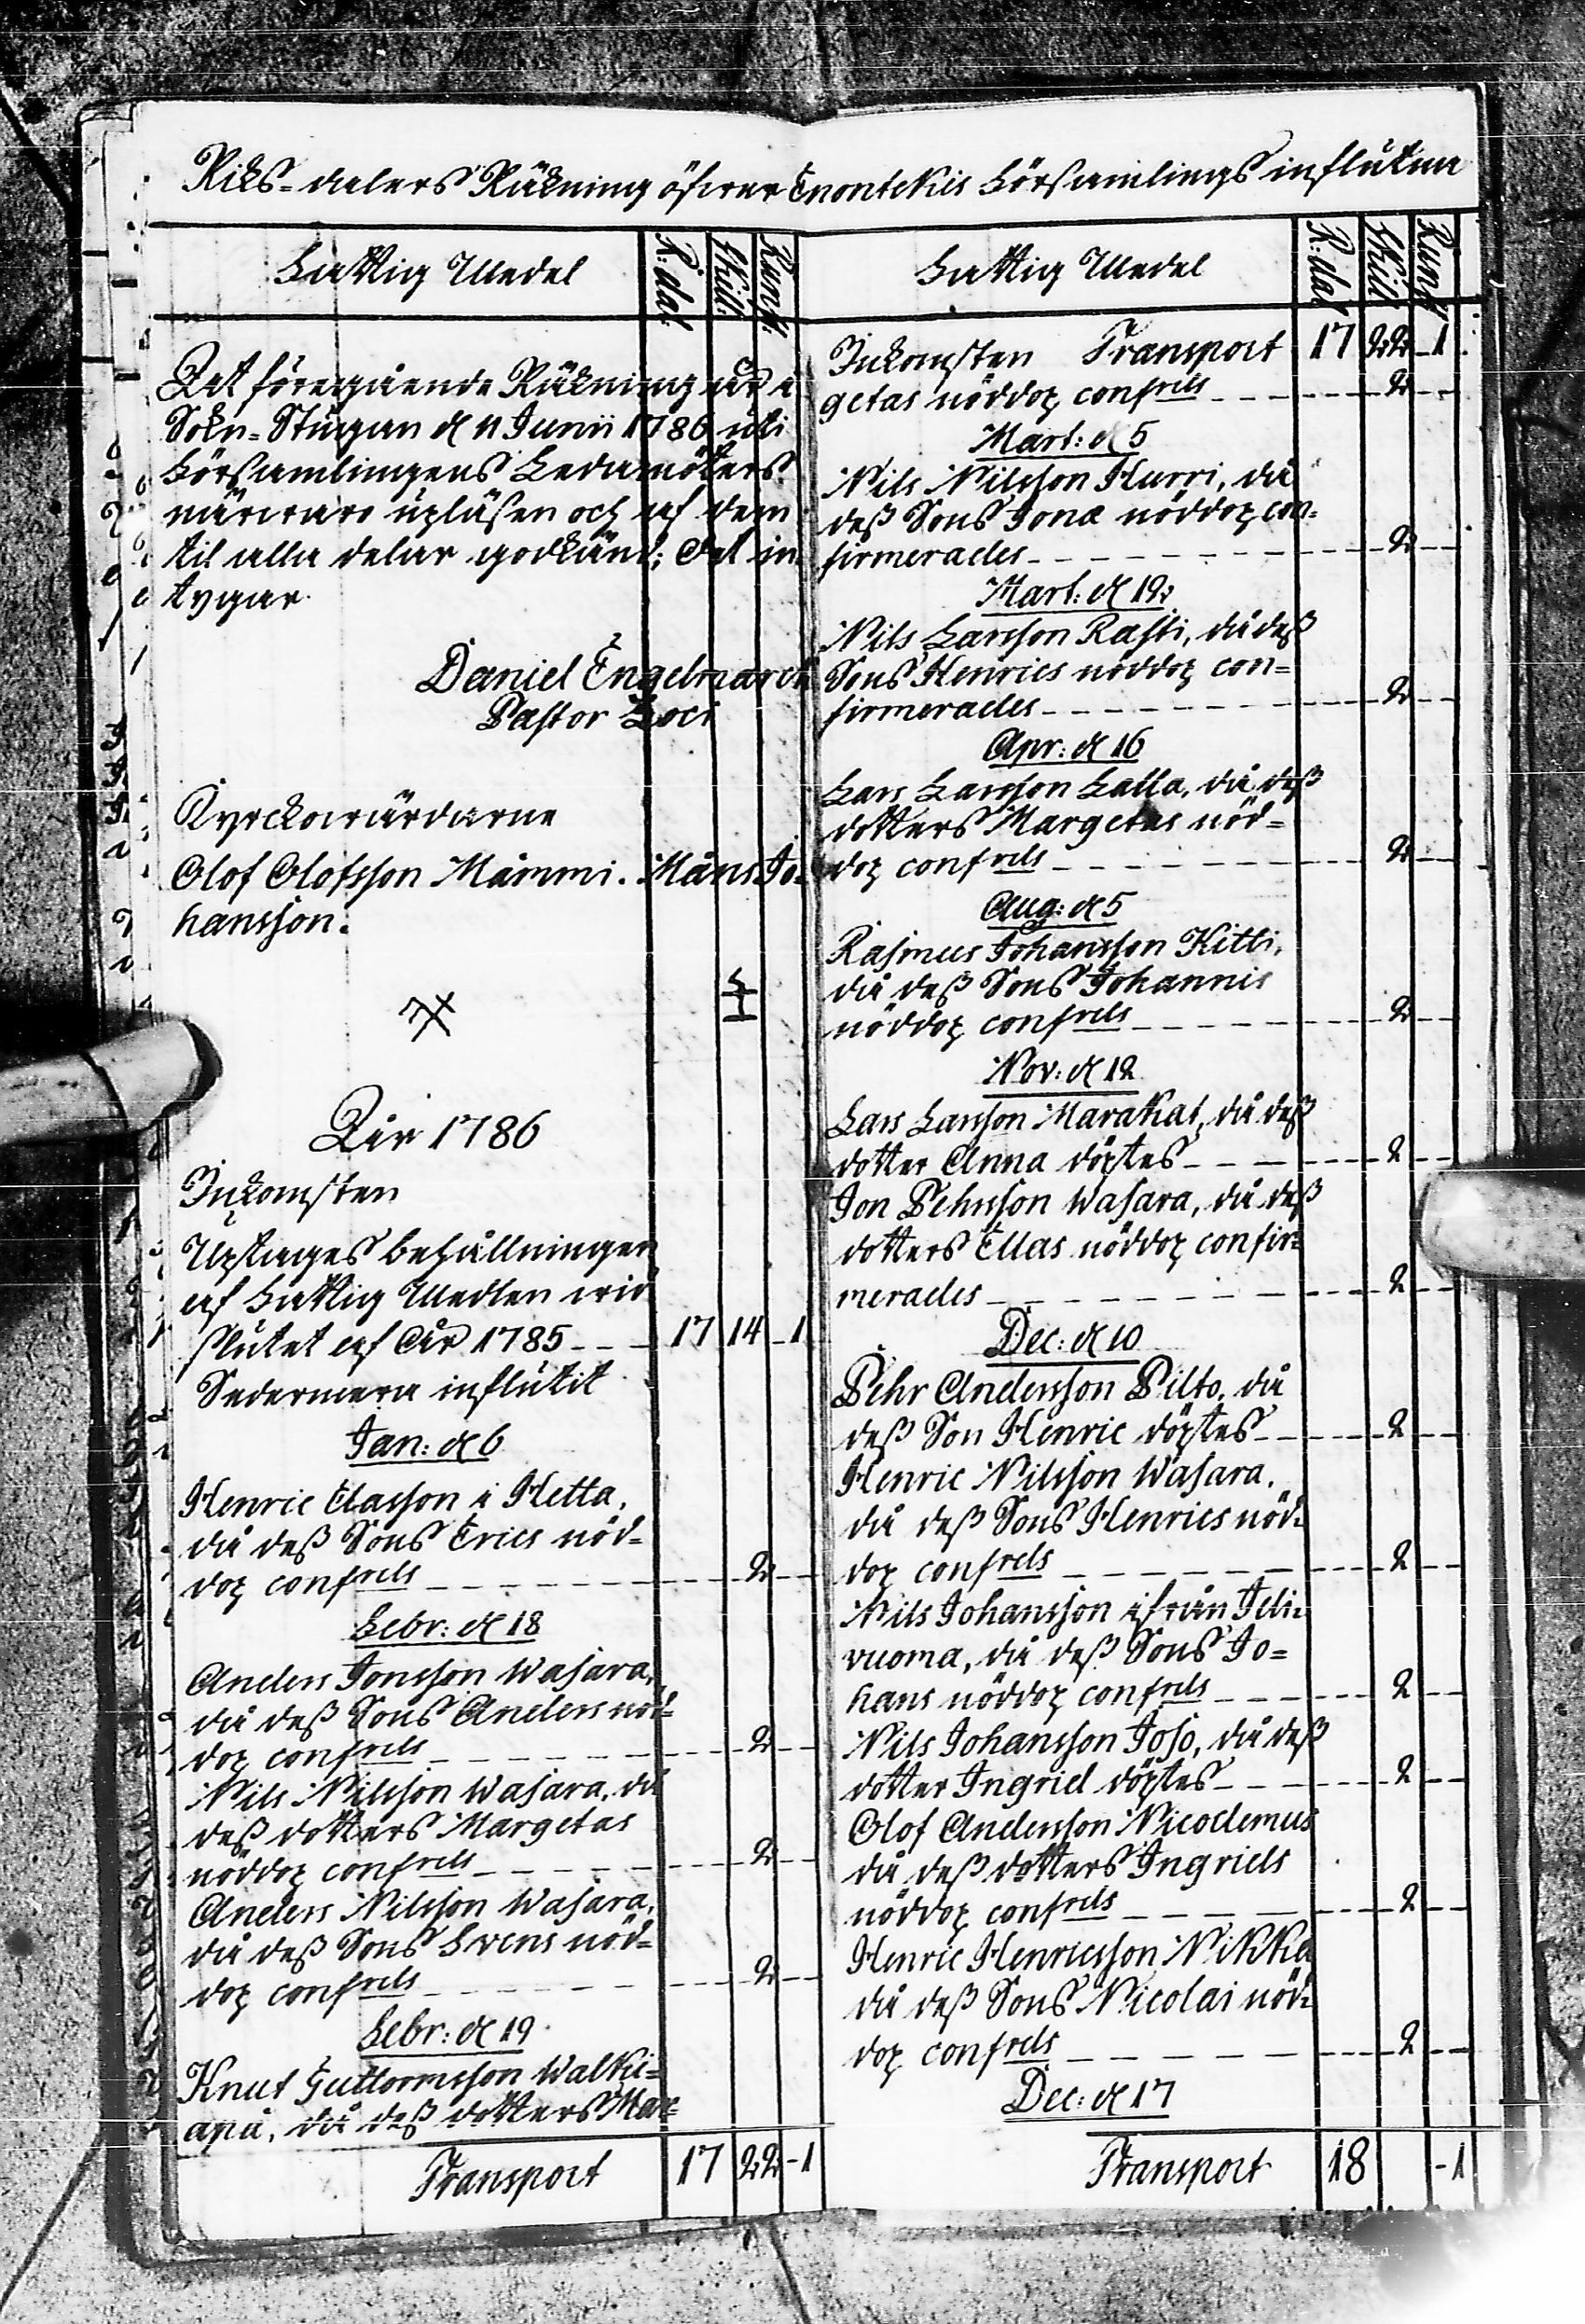 Riks-dalers Räkning öfwer Enontekis Församlings influtna
Fattig Medel R:dal: Skill: Runst:
At föregående Räkning är i
Sokn-Stugan d 11 Junii 1786 uti
Församlingens Ledamöters
närwaro upläsen och af dem
til alla delar godkänd; Det in
tygar
Daniel Engelmarck
Pastor Loci
Kyrckowärdarne
Olof Olofsson Mämmi. Måns Jo-
hansson.
Åir 1786
Inkomsten
Uptages behållningen
af Fattig Medlen wid
slutet af År 1785 - - - 17 14 - 1
Sedermera influtit
Jan: d 6
Henric Classon i Hetta,
då deß Sons Erics nöd-
dop confrds - - - 2 - -
Febr: d 18
Anders Jonsson Wasara,
då deß Sons Anders nöd-
dop confrds - - - 2 - -
Nils Nilsson Wasara, då
deß dotters Margetas
nöddop confrds - - - 2 - -
Anders Nilsson Wasara,
då deß Sons Svens nöd-
dop confrds - - - 2 - -
Febr: d 19
Knut Guttormsson Walki-
apä, då deß dotters Mar-
Transport 17 22 - 1
Fattig Medel R:dal Skill Runst
Inkomsten Transport 17 22 - 1
getas nöddop confrds - - - 2 - -
Mart: d 5
Nils Nilsson Hurri, då
deß Sons Jonæ nöddop con-
firmerades - - - 2 - -
Mart: d 19
Nils Larsson Rasti, då deß
Sons Henrics nöddop con-
firmerades - - - 2 - -
Apr: d 16
Lars Larsson Lalla, då deß
dotters Margetas nöd-
dop confrds - - - 2 - -
Aug: d 5
Rasmus Johansson Kitti,
då deß Sons Johannis
nöddop confrds - - - 2 - -
Nov: d 12
Lars Larsson Marakat, då deß
dotter Anna döptes - - - 2 - -
Jon Pehrsson Wasara, då deß
dotters Ellas nöddop confir-
merades - - - 2 - -
Dec: d 10
Pehr Andersson Pilto, då
deß Son Henric döptes - - - 2 - -
Henric Nilsson Wasara,
då deß Sons Henrics nöd-
dop confrds - - - 2 - -
Nils Johansson ifrån Jeli-
vuoma, då deß Sons Jo-
hans nöddop confrds - - - 2 - -
Nils Johansson Joso, då deß
dotter Ingrid döptes - - - 2 - -
Olof Andersson Nicodemus
då deß dotters Ingrids
nöddop confrds - - - 2 - -
Henric Henricsson Nikka
då deß Sons Nicolai nöd-
dop confrds - - - 2 - -
Dec: d 17
Transport 18 - 1